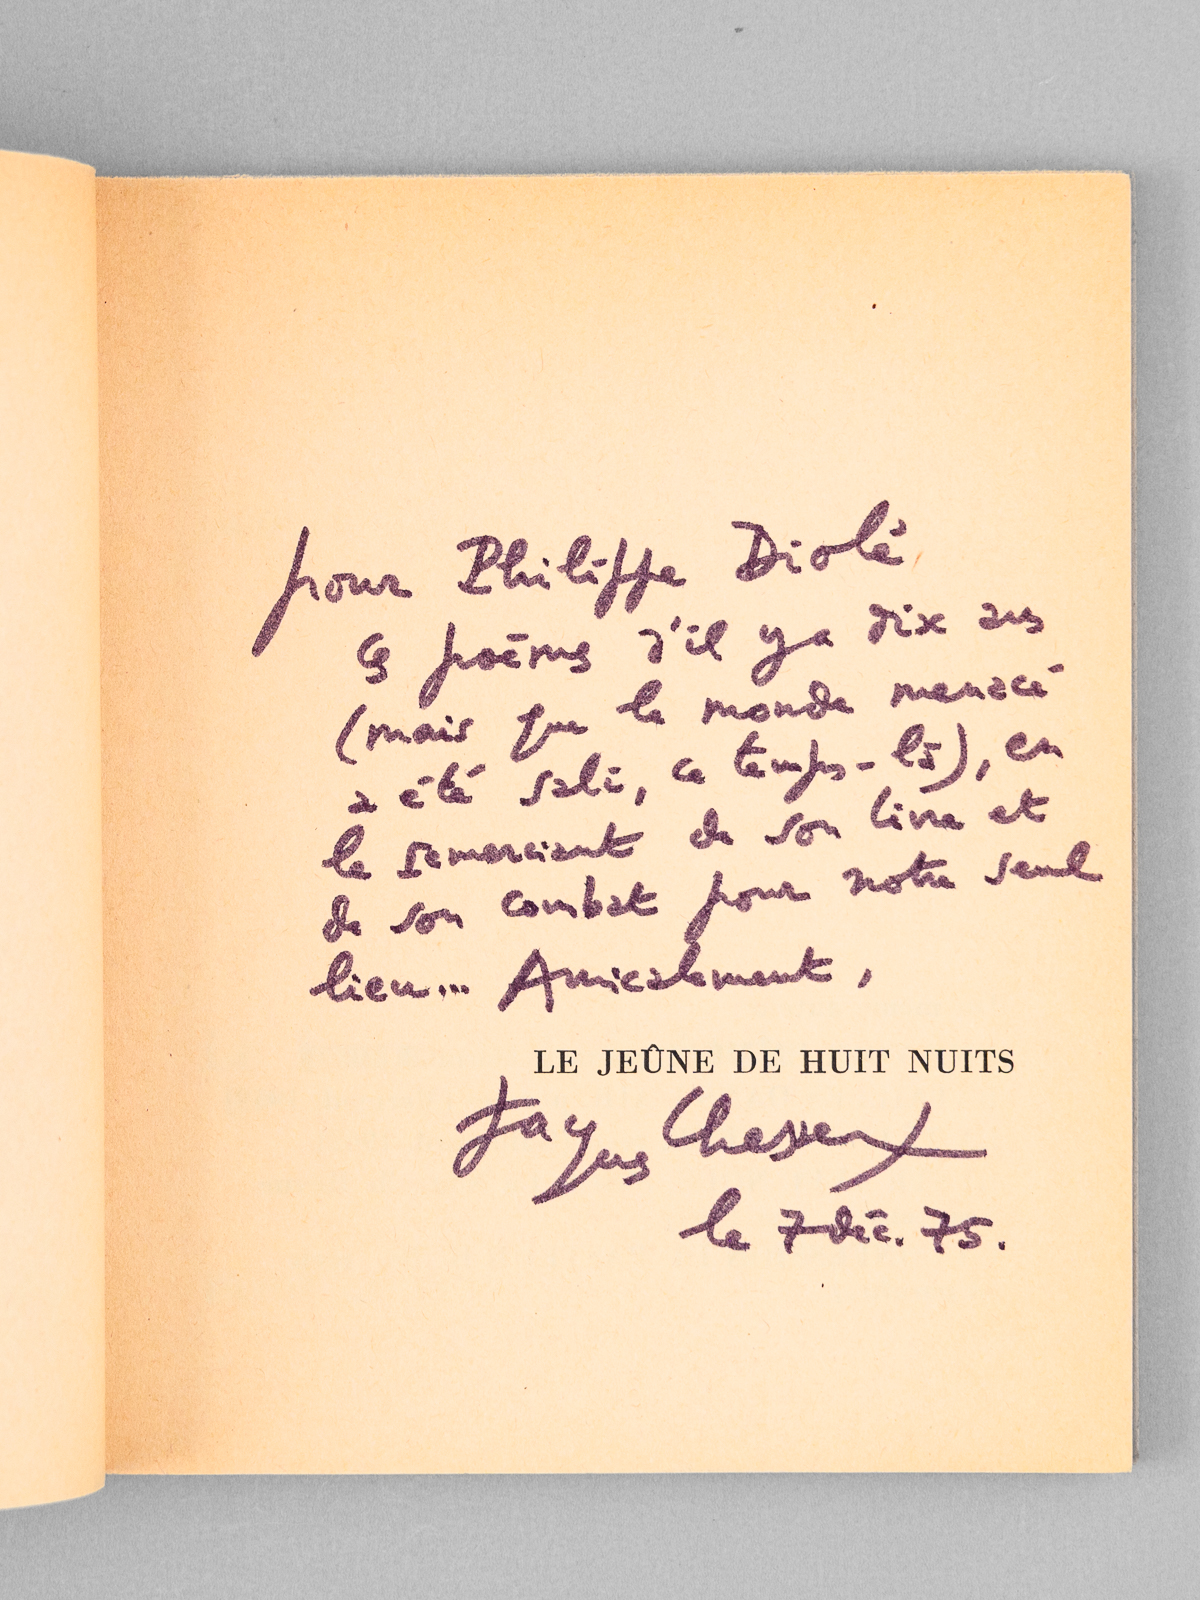 pour Philippe Diolé
ces poèmes d'il y a dix ans
(mais que le monde menacé
a été sali, ce temps-là), en
le remerciant de son livre et
de son combat pour notre seul
lieu... Amicalement,
LE JEÛNE DE HUIT NUITS
Jacques Chessex
le 7 déc. 75.